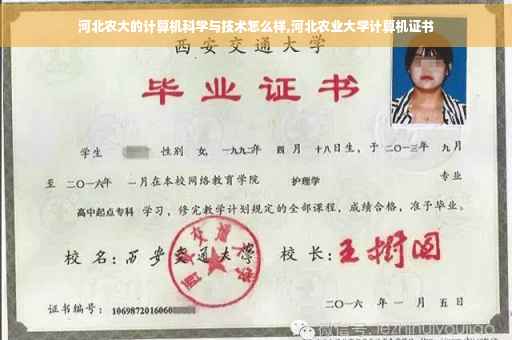 河北农大的计算机科学与技术怎么样,河北农业大学计算机证书
西安交通大学
毕业证书
学生 性别 女, 一九九二年 四 月 十八日生, 于 二〇一三年 九月
至 二〇一六年 一月在本校网络教育学院 护理学 专业
高中起点专科 学习, 修完教学计划规定的全部课程, 成绩合格, 准予毕业。
校 名: 西安交通大学 校 长: 王树国
西安交通大学
证书编号: 1069872016060
二〇一六 年 一 月 五 日
微信号: jiezhinuiyoujiao